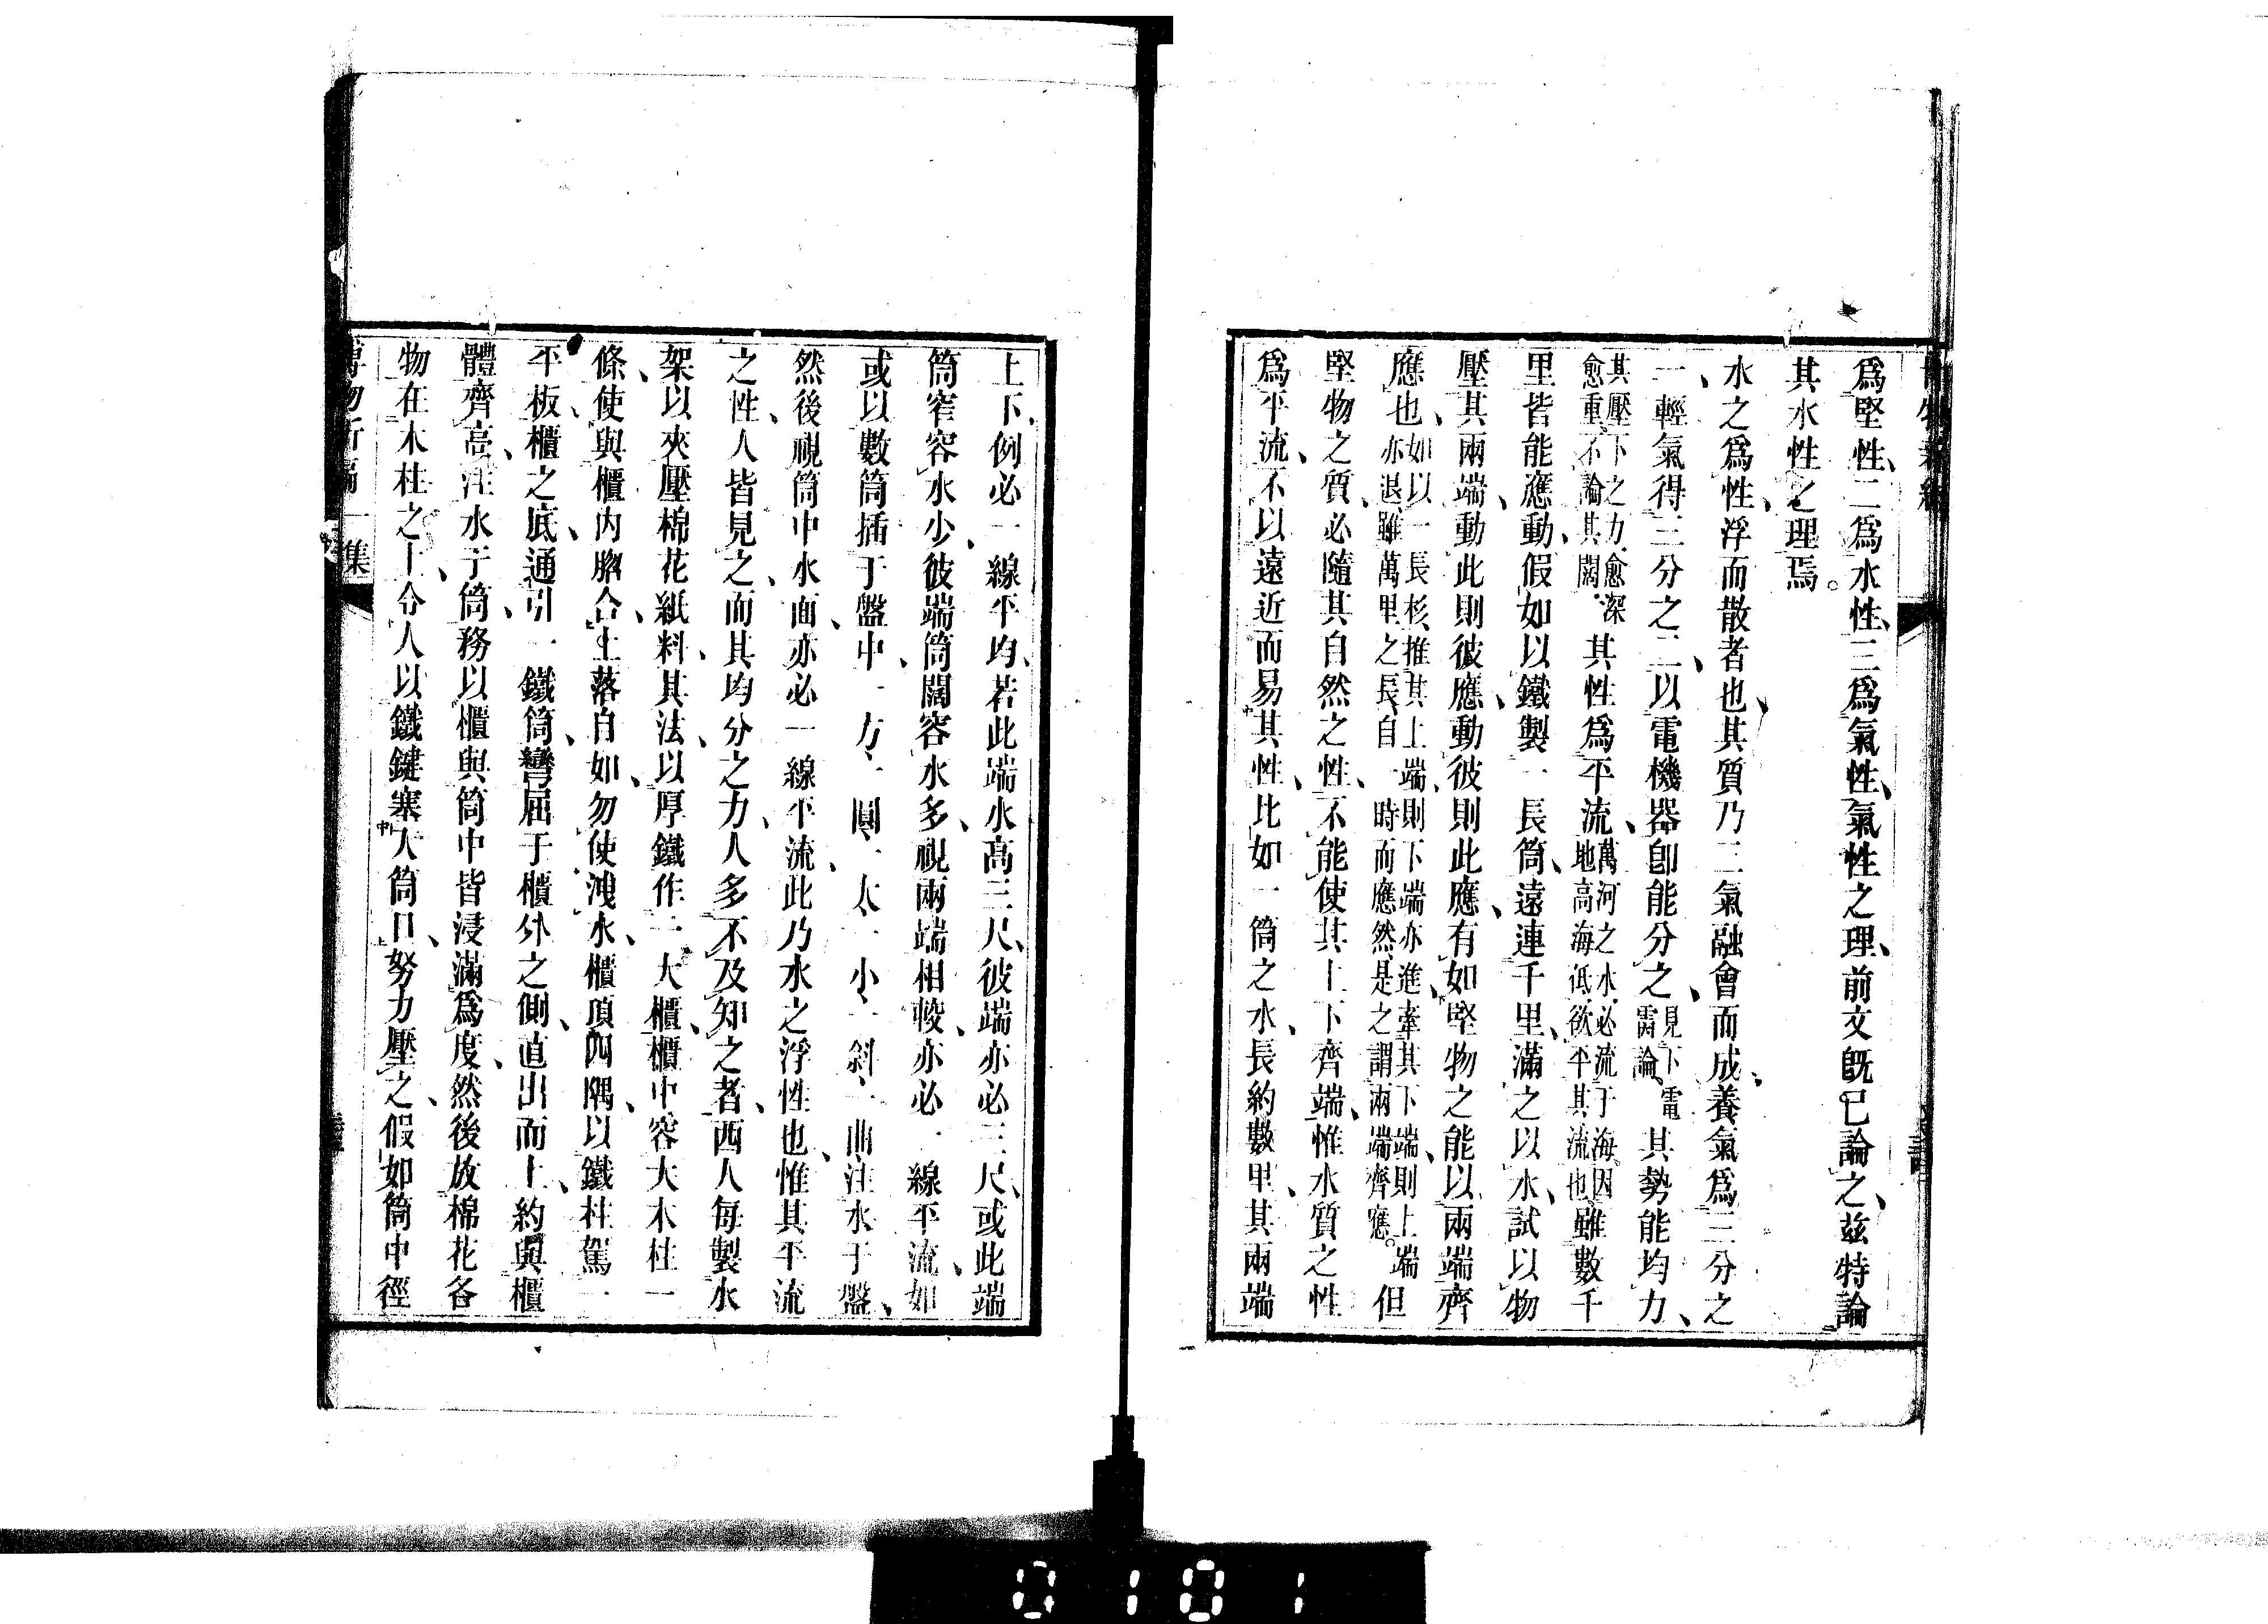 爲堅性、二爲水性、三爲氣性、氣性之理、前文旣已論之、兹特論
其水性之理焉。
水之爲性、浮而散者也、其質乃二氣融會而成、養氣爲三分之
一、輕氣得三分之二、以電機器卽能分之、見下電雷論、其勢能均力、
其壓下之力、愈深愈重、不論其闊、其性爲平流、萬河之水、必流于海、因地高海低、欲平其流也、雖數千
里皆能應動、假如以鐵製一長筒、遠連千里、滿之以水、試以物
壓其兩端、動此則彼應、動彼則此應、有如堅物之能以兩端齊
應也、如以一長杉、推其上端、則下端亦進、牽其下端、則上端亦退、雖萬里之長、自一時而應然、是之謂兩端齊應。但
堅物之質、必隨其自然之性、不能使其上下齊端、惟水質之性
爲平流、不以遠近而易其性、比如一筒之水、長約數里、其兩端
上下、例必一線平均、若此端水高三尺、彼端亦必三尺、或此端
筒窄容水少、彼端筒闊容水多、視兩端相較、亦必一線平流、如
或以數筒插于盤中、一方、一圓、一大、一小、一斜、一曲、注水于盤、
然後視筒中水面、亦必一線平流、此乃水之浮性也、惟其平流
之性、人皆見之、而其均分之力、人多不及知之者、西人每製水
架以夾壓棉花紙料、其法、以厚鐵作一大櫃、櫃中容大木柱一
條、使與櫃內脗合、上落自如、勿使洩水、櫃頂四隅、以鐵柱駕一
平板、櫃之底、通引一鐵筒、彎屈于櫃外之側、直出而上、約與櫃
體齊高、注水于筒、務以櫃與筒中皆浸滿爲度、然後放棉花各
物在木柱之上、令人以鐵鍵塞大筒口、努力壓之、假如筒中徑
博物新編 一集